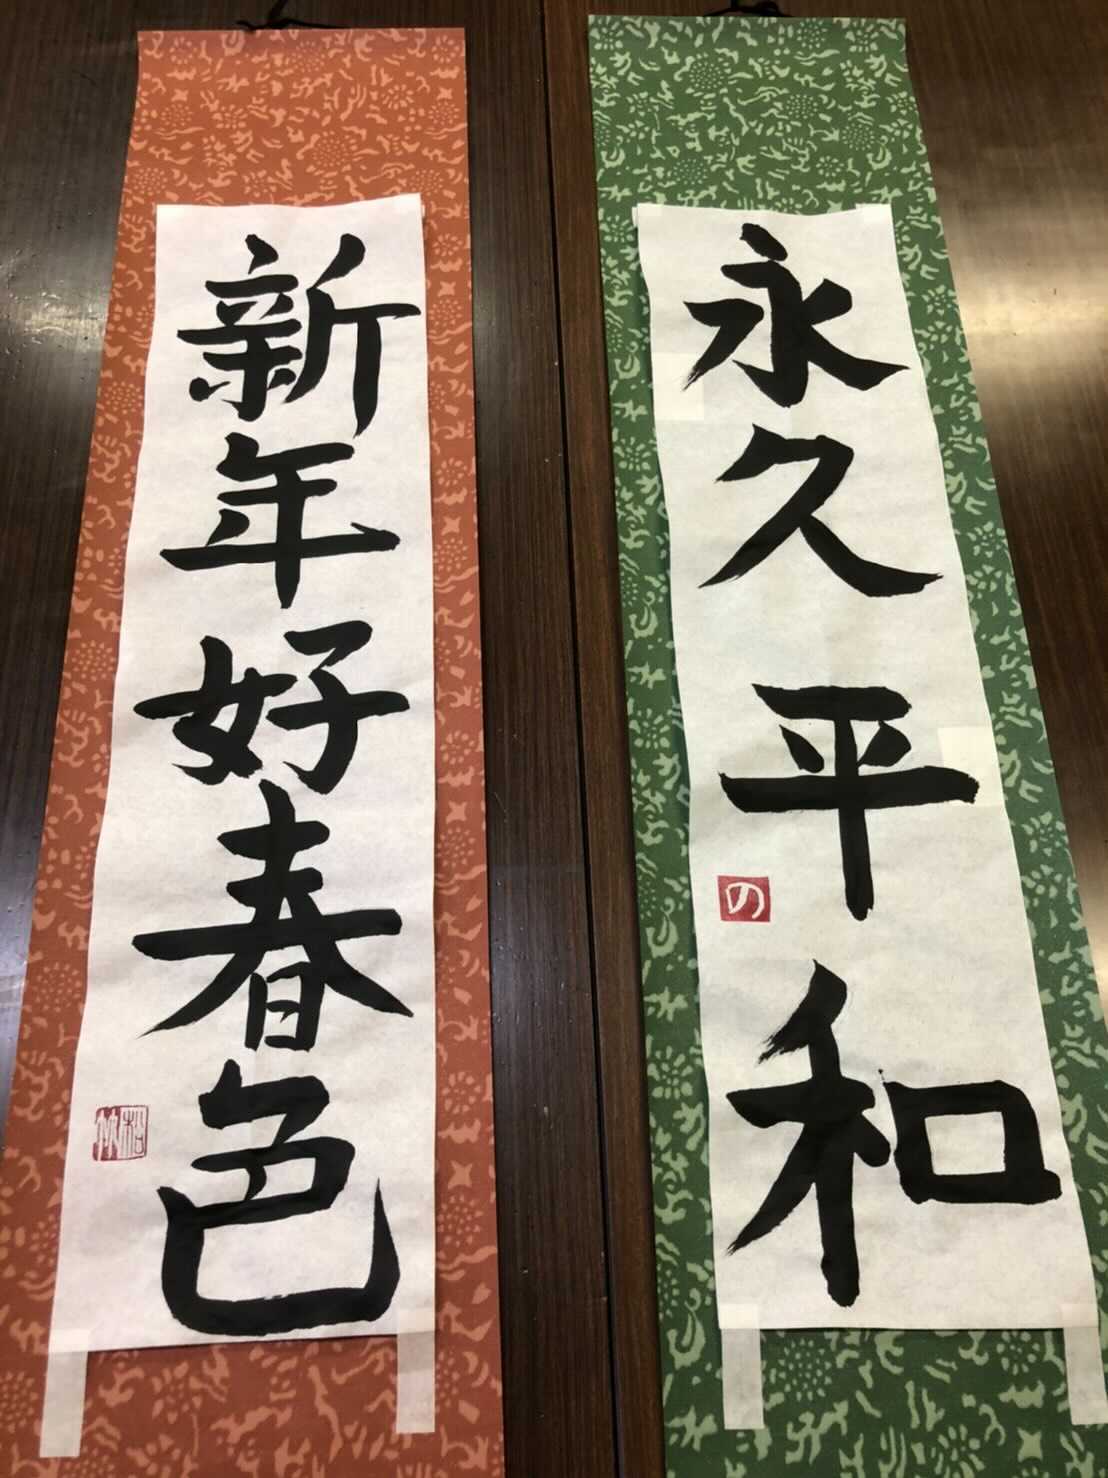 永久平和
の
新年好春色
松竹